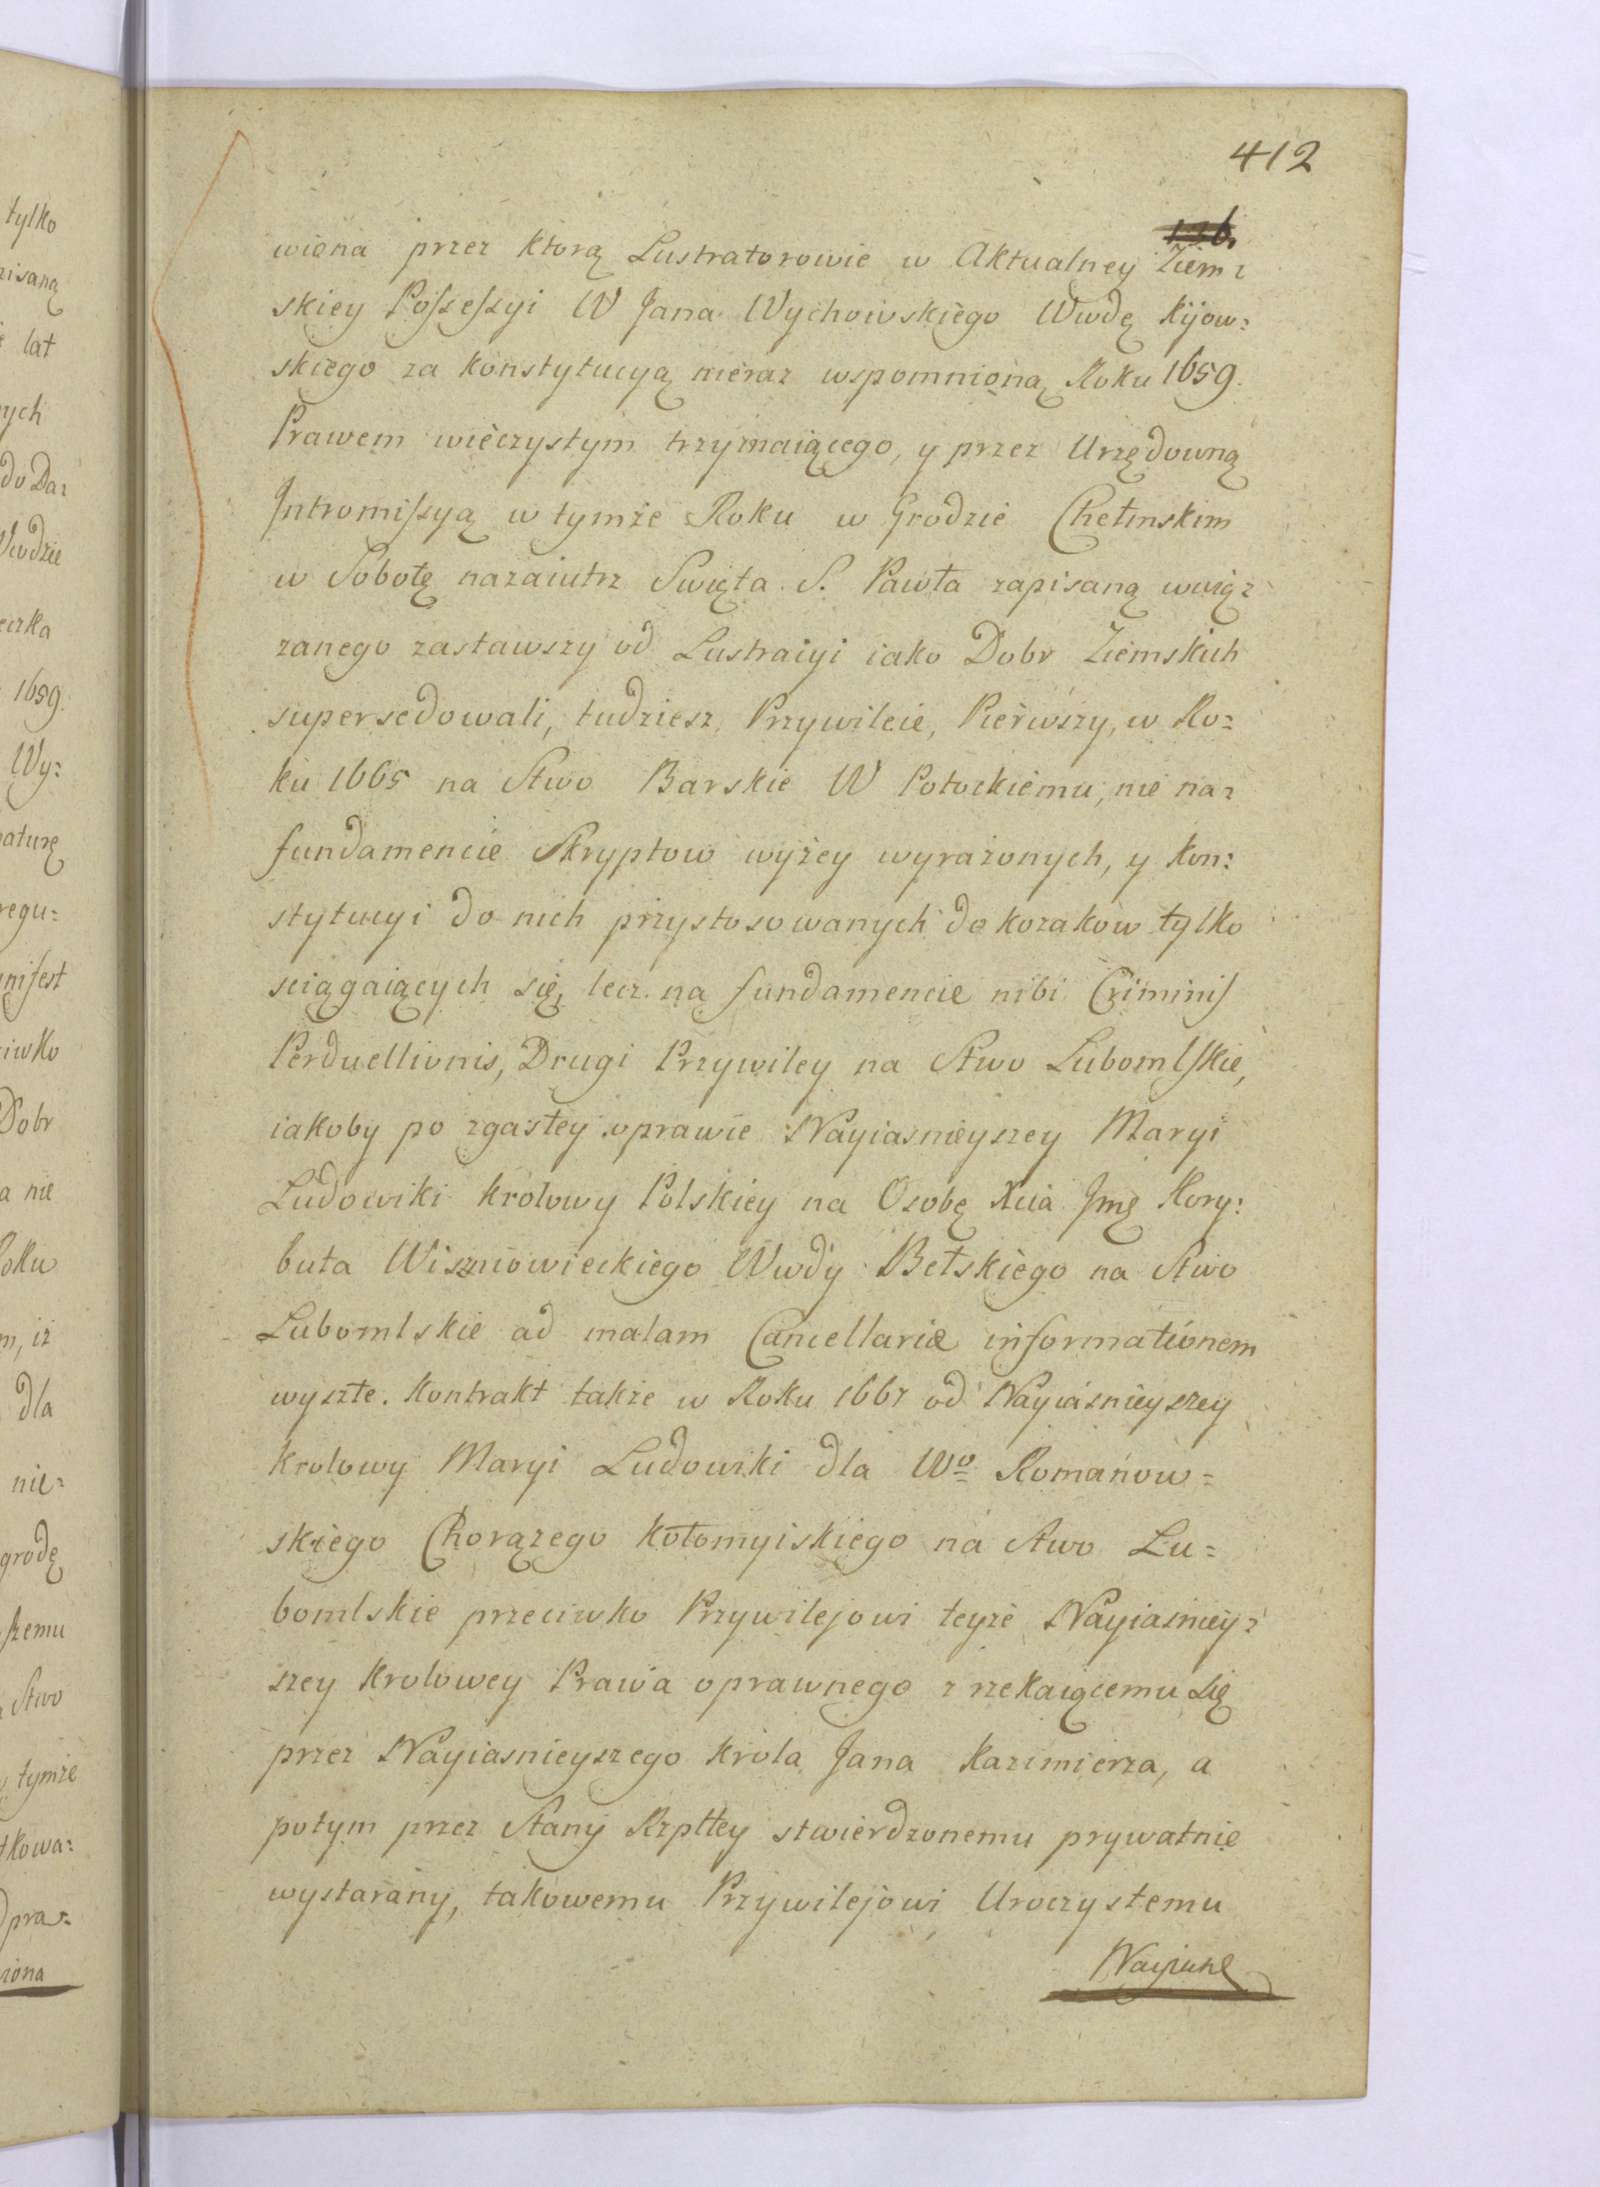 412
136.
wiona przez ktorą Lustratorowie w Aktualney Ziem:
skiey Possessyi W Jana Wychowskiego Wwdę Kijow:
skiego za Konstytucyą nieraz wspomnioną Roku 1659.
Prawem wieczystym trzymaiącego, y przez Urzędowną
Intromissyą w tymże Roku w Grodzie Chełmskim
w Sobotę nazaiutrz Swięta S. Pawła zapisaną wwią:
zanego zastawszy od Lustracyi iako Dobr Ziemskich
supersedowali, tudziesz Przywileie, Pierwszy, w Ro:
ku 1665 na Stwo Barskie W Potockiemu, nie na:
fundamencie Skryptow wyżey wyrażonych, y Kon:
stytucyi do nich przystosowanych do Kozakow tylko
sciągaiących się, lecz na fundamencie nibi Criminis
Perduellionis, Drugi Przywiley na Stwo Lubomlskie,
iakoby po zgasłey oprawie Nayiasnieyszey Maryi
Ludowiki Krolowy Polskiey na Osobę Xcia Jmę Kory:
buta Wiszniowieckiego Wwdy Bełskiego na Stwo
Lubomlskie ad malam Cancellariæ informationem
wyszłe. Kontrakt także w Roku 1667 od Nayiasnieyszey
Krolowy Maryi Ludowiki dla Wo Romanow=
skiego Chorązego Kołomyiskiego na Stwo Lu=
bomlskie przeciwko Przywilejowi teyże Nayiasniey:
szey Krolowey Prawa oprawnego zrzekaiącemu się
przez Nayiasnieyszego Krola Jana Kazimierza, a
potym przez Stany Rzpltey stwierdzonemu prywatnie
wystarany, takowemu Przywilejowi Uroczystemu
Nayiasne
tylko
pisaną
lat
ych
do Da:
Grodzie
eczka
1659.
Wy:
naturę
regu:
manifest
ciwko
Dobr
a nie
Roku
m, iż
dla
nie:
grodę
szemu
Stwo
tymże
tkowa:
pra:
wiona